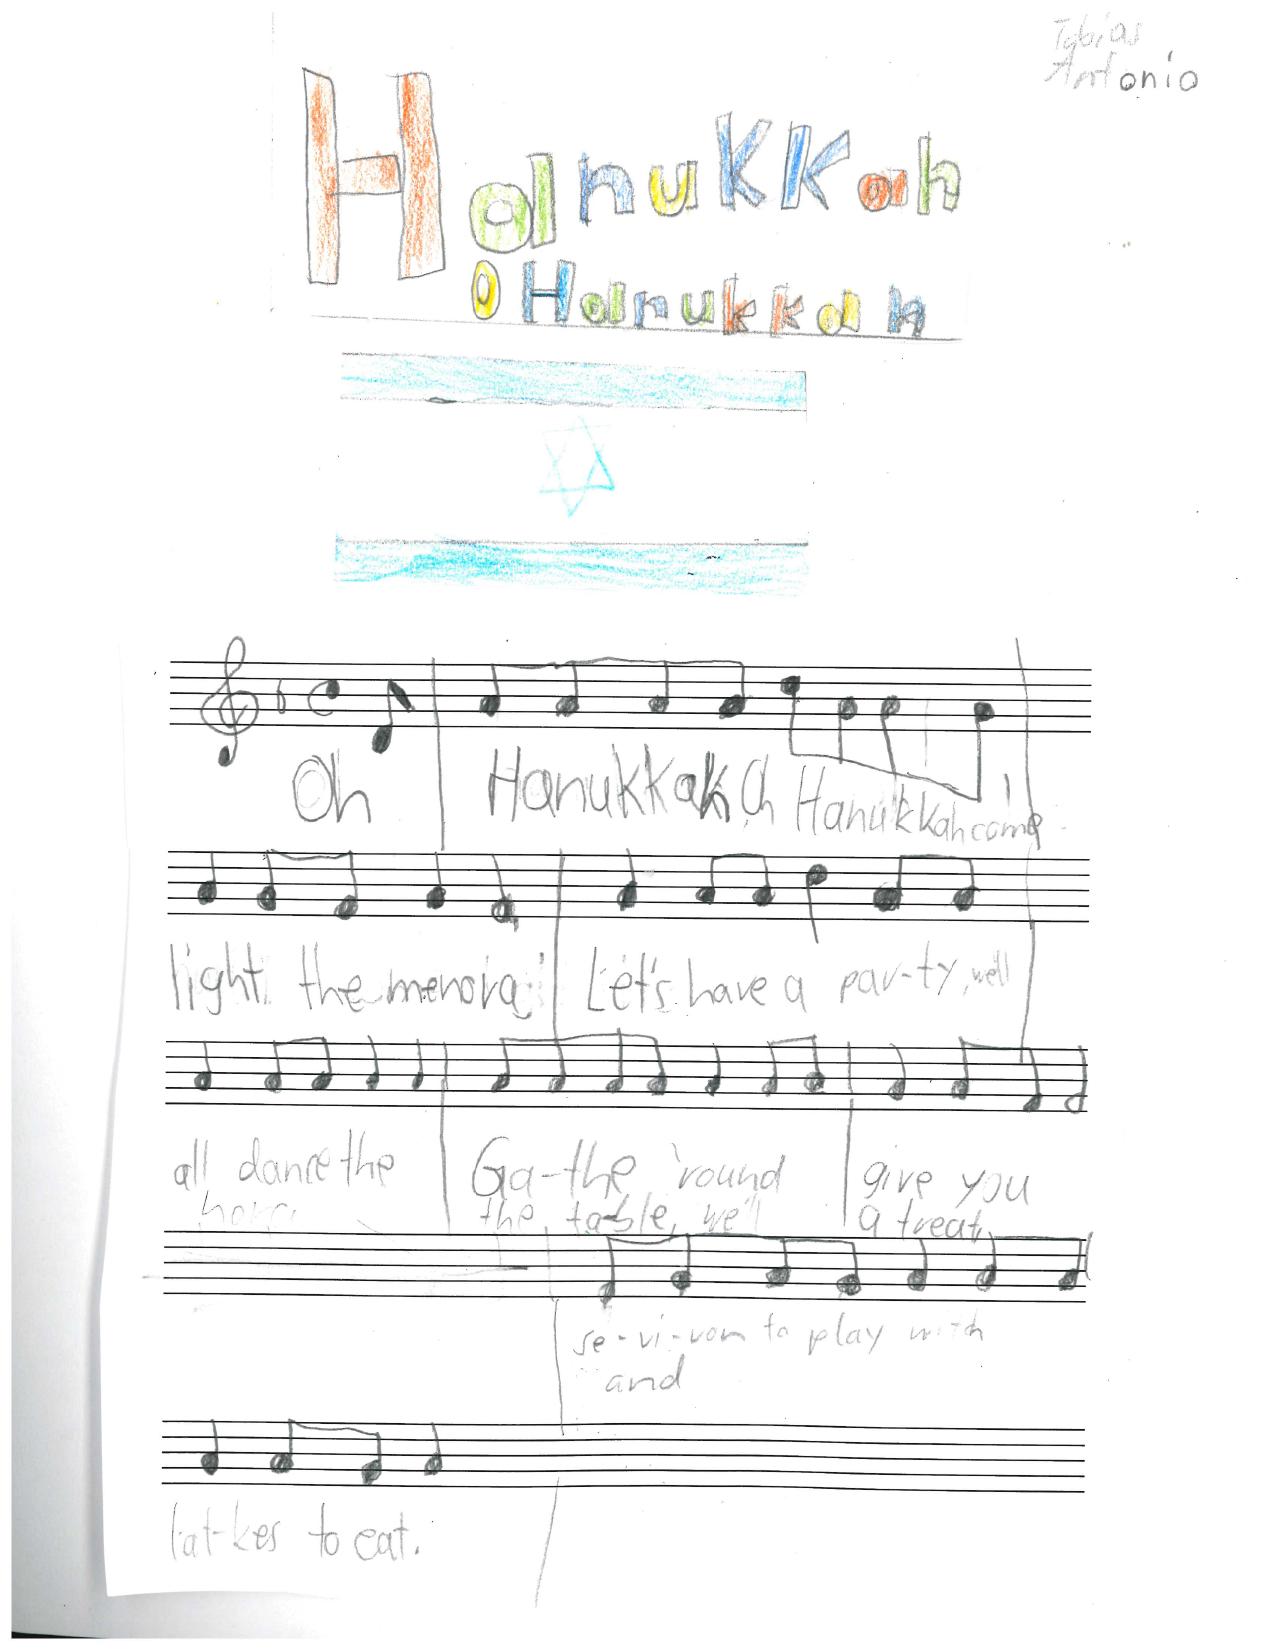 Tobias
Antonio
Hanukkah
O Hanukkah
Oh Hanukkah, Oh Hanukkah come
light the menora; Let's have a par-ty, we'll
all dance the Ga-the 'round give you
hora the table, we'll a treat,
se-vi-von to play with
and
lat-kes to eat.